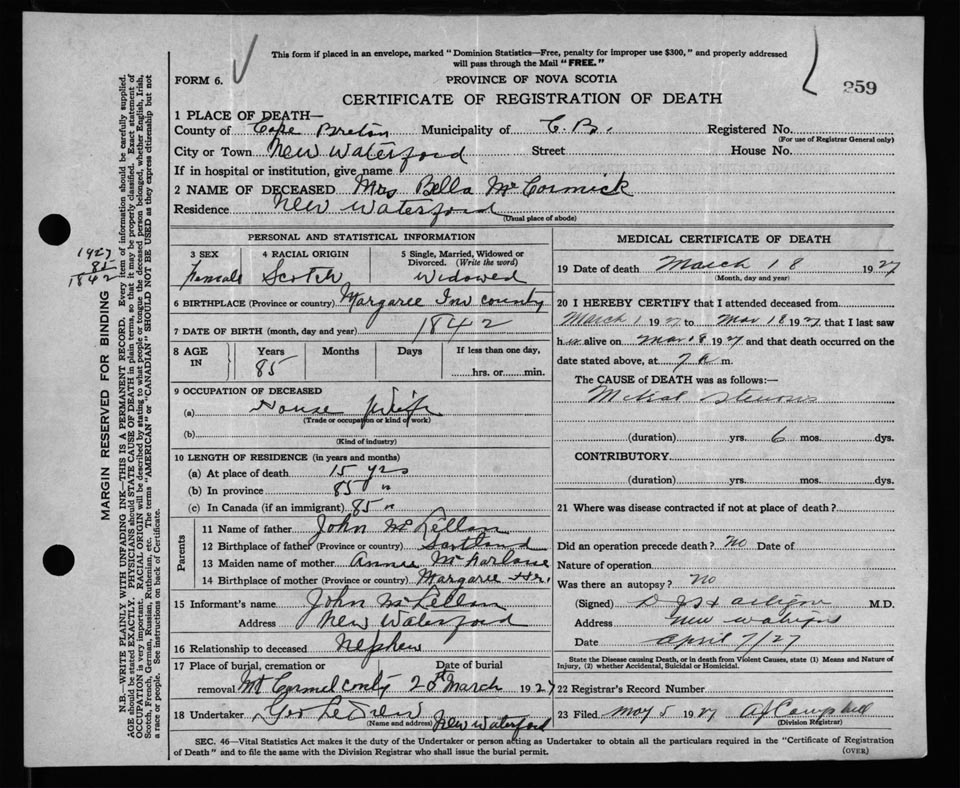 This form if placed in an envelope, marked "Dominion Statistics—Free, penalty for improper use $300," and properly addressed
will pass through the Mail "FREE."
FORM 6.
PROVINCE OF NOVA SCOTIA
259
CERTIFICATE OF REGISTRATION OF DEATH
1 PLACE OF DEATH—
County of Cape Breton Municipality of C. B. Registered No.
(For use of Registrar General only)
City or Town New Waterford Street House No.
If in hospital or institution, give name
2 NAME OF DECEASED Mrs Bella McCormick
Residence New Waterford
(Usual place of abode)
PERSONAL AND STATISTICAL INFORMATION
3 SEX 4 RACIAL ORIGIN 5 Single, Married, Widowed or
Divorced. (Write the word)
Female Scotch Widowed
6 BIRTHPLACE (Province or country) Margaree Inv county
7 DATE OF BIRTH (month, day and year) 1842
8 AGE IN Years Months Days If less than one day,
85 hrs. or min.
9 OCCUPATION OF DECEASED
(a) House Wife
(Trade or occupation or kind of work)
(b)
(Kind of industry)
10 LENGTH OF RESIDENCE (in years and months)
(a) At place of death 15 yrs
(b) In province 85 "
(c) In Canada (if an immigrant) 85 "
Parents
11 Name of father John McLellan
12 Birthplace of father (Province or country) Scotland
13 Maiden name of mother Annie McFarlane
14 Birthplace of mother (Province or country) Margaree
15 Informant's name John McLellan
Address New Waterford
16 Relationship to deceased Nephew
17 Place of burial, cremation or Date of burial
removal Mt Carmel 20 March 1927
18 Undertaker Geo LeDrew New Waterford
(Name and address)
MEDICAL CERTIFICATE OF DEATH
19 Date of death March 18 1927
(Month, day and year)
20 I HEREBY CERTIFY that I attended deceased from
March 1 1927 to Mar 18 1927, that I last saw
h alive on Mar 18 1927 and that death occurred on the
date stated above, at 7 m.
The CAUSE of DEATH was as follows:—
Mitral Stenosis
(duration) yrs. 6 mos. dys.
CONTRIBUTORY
(duration) yrs. mos. dys.
21 Where was disease contracted if not at place of death?
Did an operation precede death? No Date of
Nature of operation
Was there an autopsy? No
(Signed) M.D.
Address New Waterford
Date April 7/27
State the Disease causing Death, or in death from Violent Causes, state (1) Means and Nature of
Injury, (2) whether Accidental, Suicidal or Homicidal.
22 Registrar's Record Number
23 Filed May 5 1927 A J Campbell
(Division Registrar)
SEC. 46—Vital Statistics Act makes it the duty of the Undertaker or person acting as Undertaker to obtain all the particulars required in the "Certificate of Registration
of Death" and to file the same with the Division Registrar who shall issue the burial permit.
(OVER)
1927
85
1842
MARGIN RESERVED FOR BINDING
N.B.—WRITE PLAINLY WITH UNFADING INK—THIS IS A PERMANENT RECORD. Every item of information should be carefully supplied.
AGE should be stated EXACTLY. PHYSICIANS should STATE CAUSE OF DEATH in plain terms, so that it may be properly classified. Exact statement of
OCCUPATION is very important. RACIAL ORIGIN will be described by stating to what people or tongue the deceased person belonged, whether English, Irish,
Scotch, French, German, Russian, Ruthenian, etc. The terms "AMERICAN" or "CANADIAN" SHOULD NOT BE USED as they express citizenship but not
a race or people. See instructions on back of Certificate.